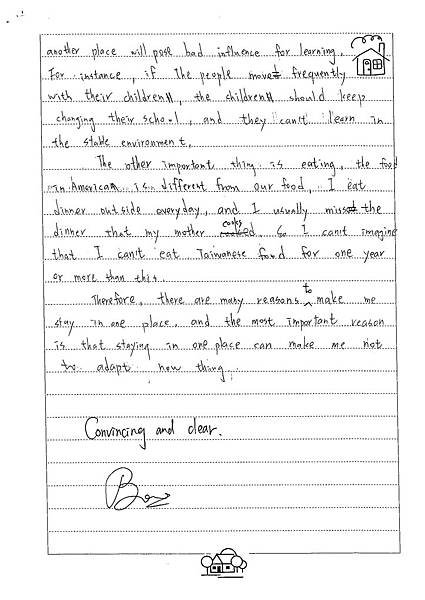 another place will pose bad influence for learning.
For instance, if the people move frequently
with their children, the children should keep
changing their school, and they can't learn in
the stable environment.
The other important thing is eating, the food
in American is different from our food, I eat
dinner outside everyday, and I usually miss the
cooks
dinner that my mother So I can't imagine
that I can't eat Taiwanese food for one year
or more than this.
to
Therefore, there are many reasons make me
stay in one place, and the most important reason
is that staying in one place can make me not
to adapt new thing.
Convincing and clear.